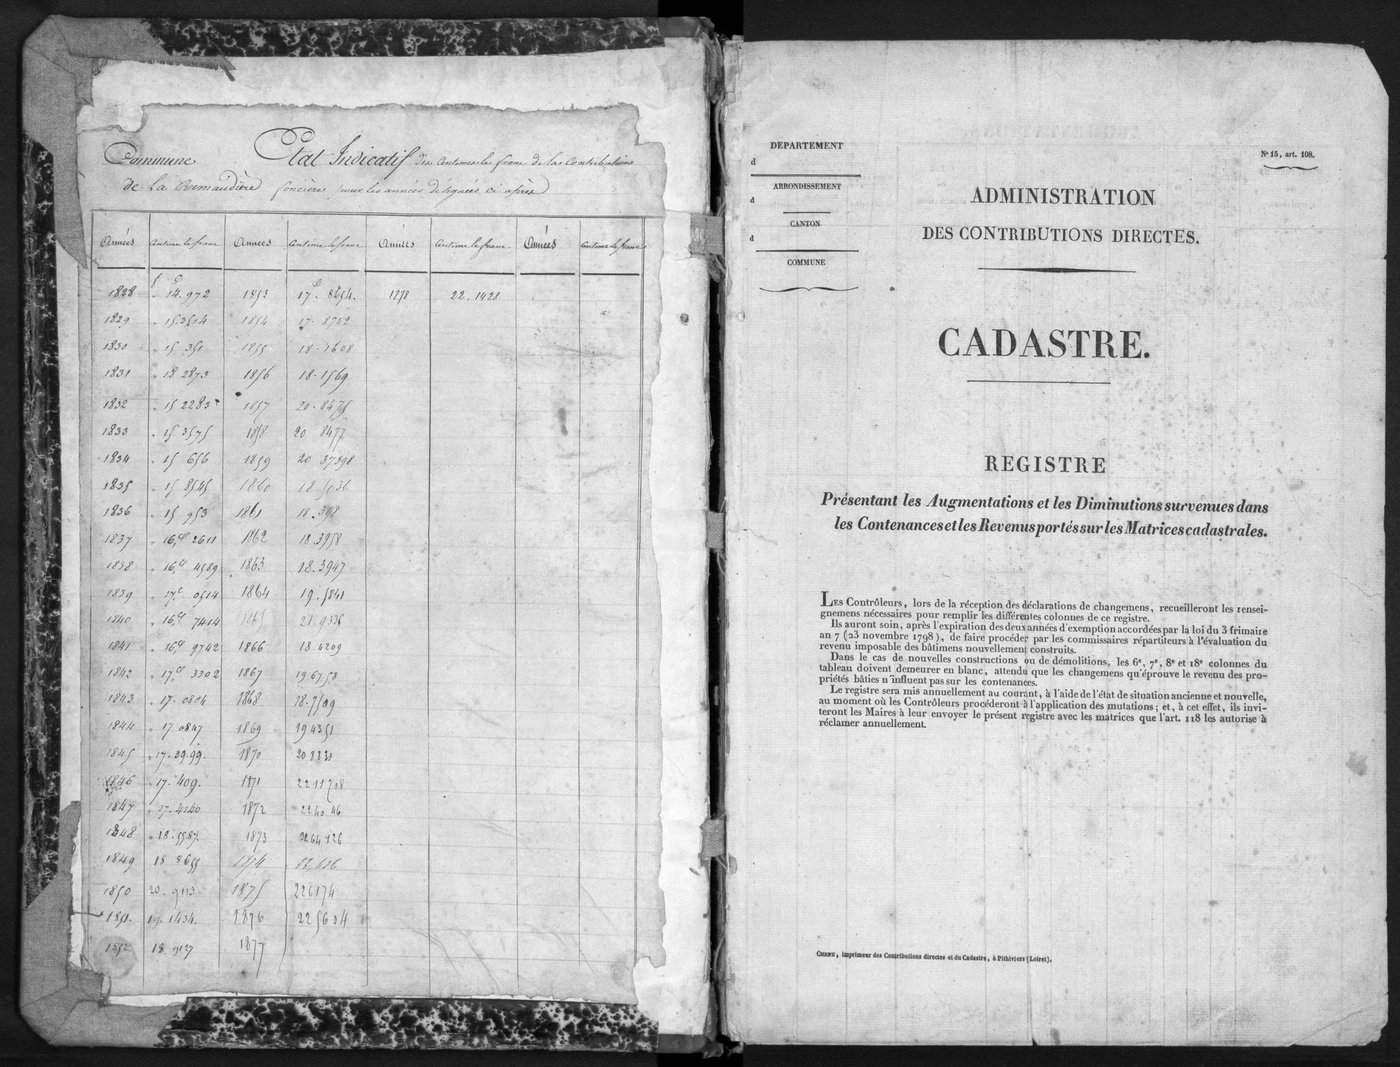 Commune Etat Indicatif des Centimes le franc de la Contribution
de La Remaudière foncière pour les années désignées ci après
Années Centime le franc Années Centime le franc Années Centime le franc Années Centime le franc
1828 14.972 1853 17.8654 1878 22.1428
1829 15.3514 1854 17.8742
1830 15 351 1855 18.1608
1831 18 2873 1856 18.1569
1832 15 2283 1857 20.8475
1833 15 3575 1858 20 8477
1834 15 656 1859 20 37398
1835 15 8525 1860 18.5036
1836 15 953 1861 18.392
1837 16,c 2611 1862 18.3958
1838 16,c 4589 1863 18.3947
1839 17,c 0514 1864 19.5841
1840 16,c 7414 1865 21.9336
1841 16c 9742 1866 18 6209
1842 17,c 3302 1867 19 6758
1843 17.0804 1868 18.7509
1844 17 0847 1869 19 4351
1845 17.39.99. 1870 20 8331
1846 17.409. 1871 22 11708
1847 17.4140 1872 22 40 46
1848 18.5587. 1873 22 64 126
1849 18 8655 1874
1850 20.9113 1875 226174
1851. 19.1434. 1876 225604
1852 18.9137 1877
DEPARTEMENT
d
ARRONDISSEMENT
d
CANTON
d
COMMUNE
N° 15, art. 108.
ADMINISTRATION
DES CONTRIBUTIONS DIRECTES.
CADASTRE.
REGISTRE
Présentant les Augmentations et les Diminutions survenues dans
les Contenances et les Revenus portés sur les Matrices cadastrales.
LES Contrôleurs, lors de la réception des déclarations de changemens, recueilleront les rensei-
gnemens nécessaires pour remplir les différentes colonnes de ce registre.
Ils auront soin, après l'expiration des deux années d'exemption accordées par la loi du 3 frimaire
an 7 (23 novembre 1798), de faire procéder par les commissaires répartiteurs à l'évaluation du
revenu imposable des bâtimens nouvellement construits.
Dans le cas de nouvelles constructions ou de démolitions, les 6e, 7e, 8e et 18e colonnes du
tableau doivent demeurer en blanc, attendu que les changemens qu'éprouve le revenu des pro-
priétés bâties n'influent pas sur les contenances.
Le registre sera mis annuellement au courant, à l'aide de l'état de situation ancienne et nouvelle,
au moment où les Contrôleurs procéderont à l'application des mutations; et, à cet effet, ils invi-
teront les Maires à leur envoyer le présent registre avec les matrices que l'art. 118 les autorise à
réclamer annuellement.
CHENU, imprimeur des Contributions directes et du Cadastre, à Pithiviers (Loiret).